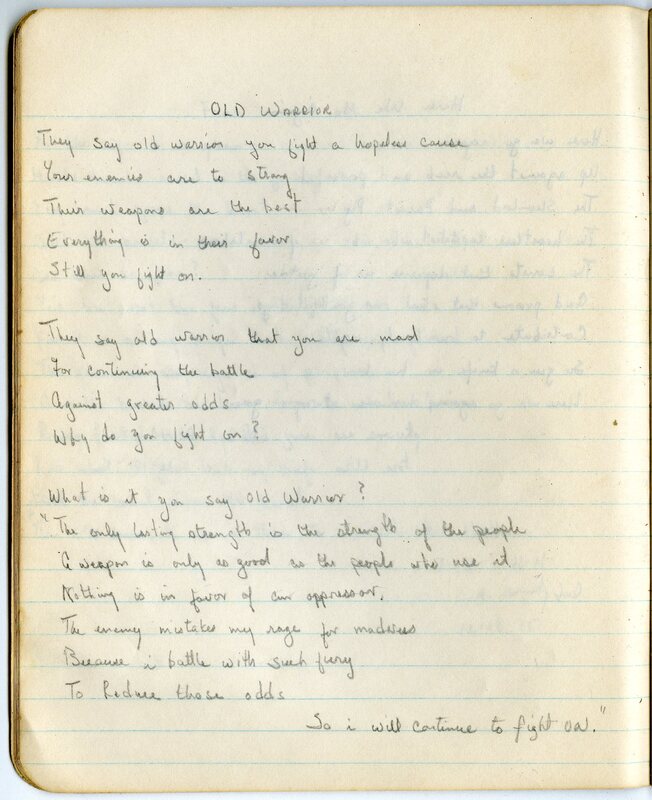 OLD WARRIOR
They say old warrior you fight a hopeless cause
Your enemies are to strong
Their weapons are the best
Everything is in their favor
Still you fight on.
They say old warrior that you are mad
For continuing the battle
Against greater odds
Why do you fight on?
What is it you say Old Warrior?
"The only lasting strength is the strength of the people
A weapon is only as good as the people who use it
Nothing is in favor of an oppressor.
The enemy mistakes my rage for madness
Because i battle with such fiery
To Reduce those odds
So i will continue to fight on."